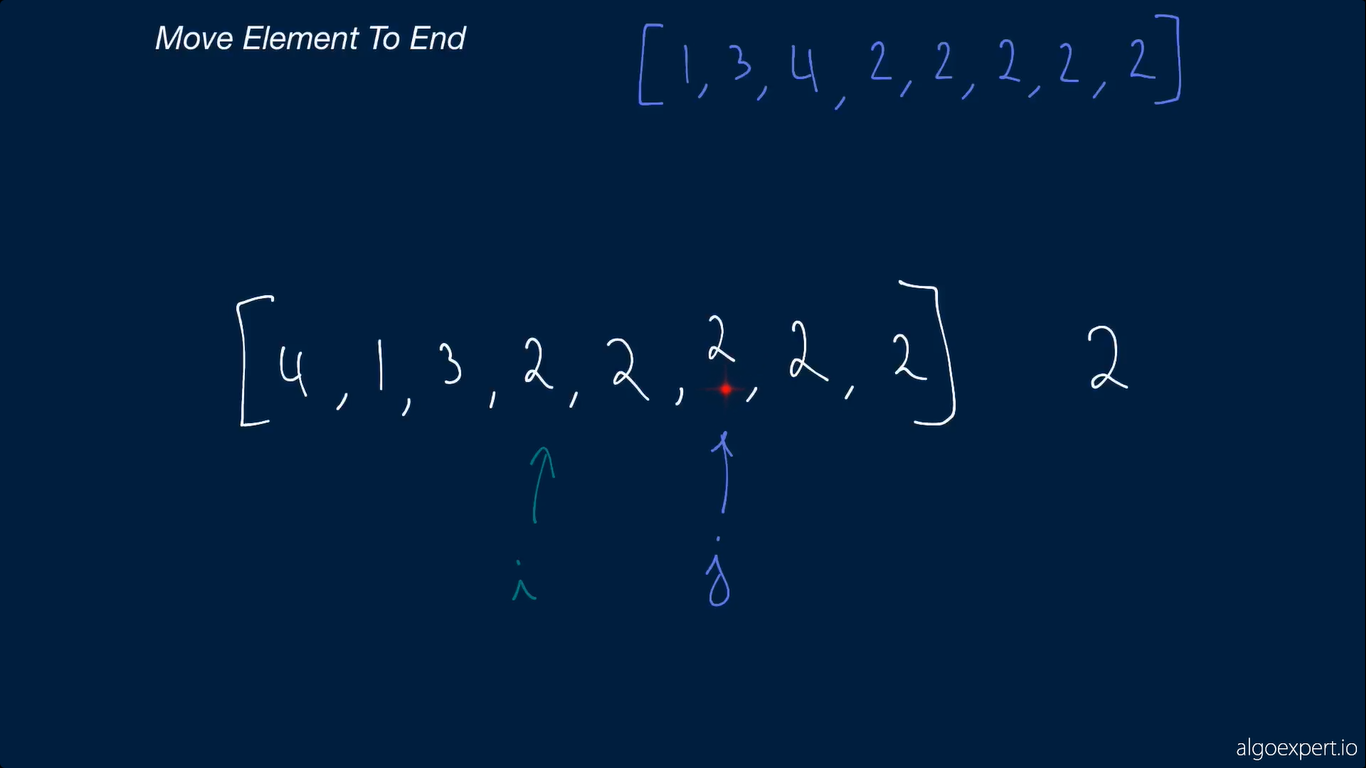 Move Element To End
[1, 3, 4, 2, 2, 2, 2, 2]
[4, 1, 3, 2, 2, 2, 2, 2] 2
i j
algoexpert.io